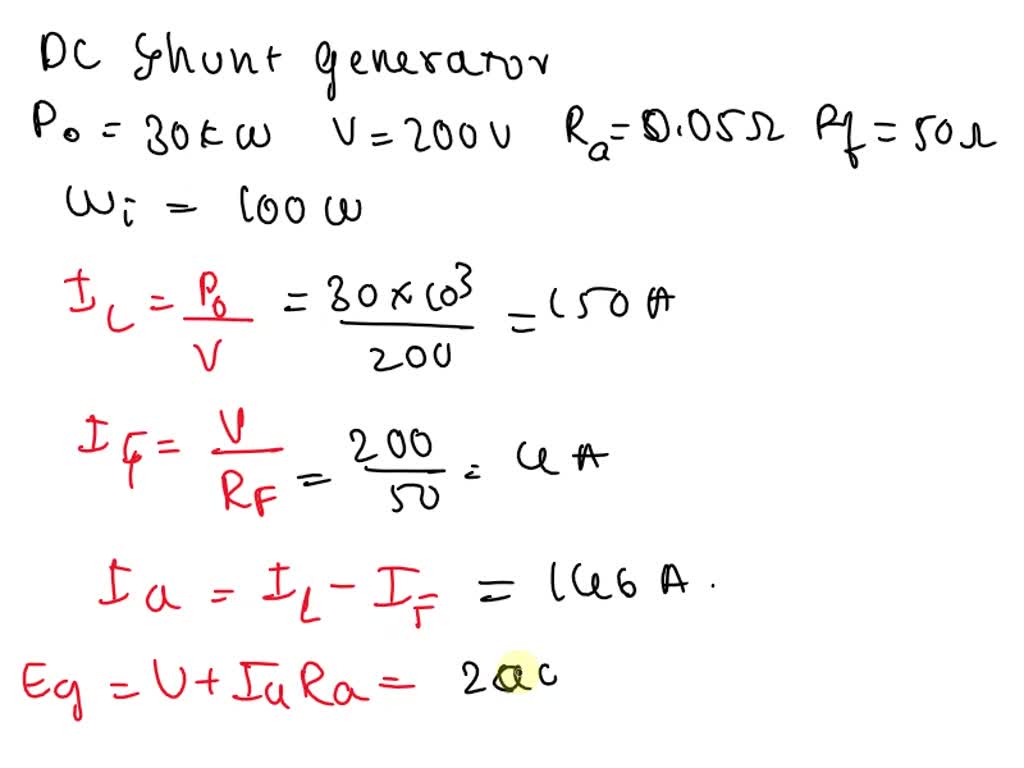 DC Shunt generator
P₀ = 30kW V = 200V Ra = 0.05Ω Rf = 50Ω
Wi = 100 W
I_L = P₀/V = 30×10³/200 = 150 A
I_F = V/R_F = 200/50 = 4 A
Ia = I_L - I_F = 146 A.
Eg = V + Ia Ra =